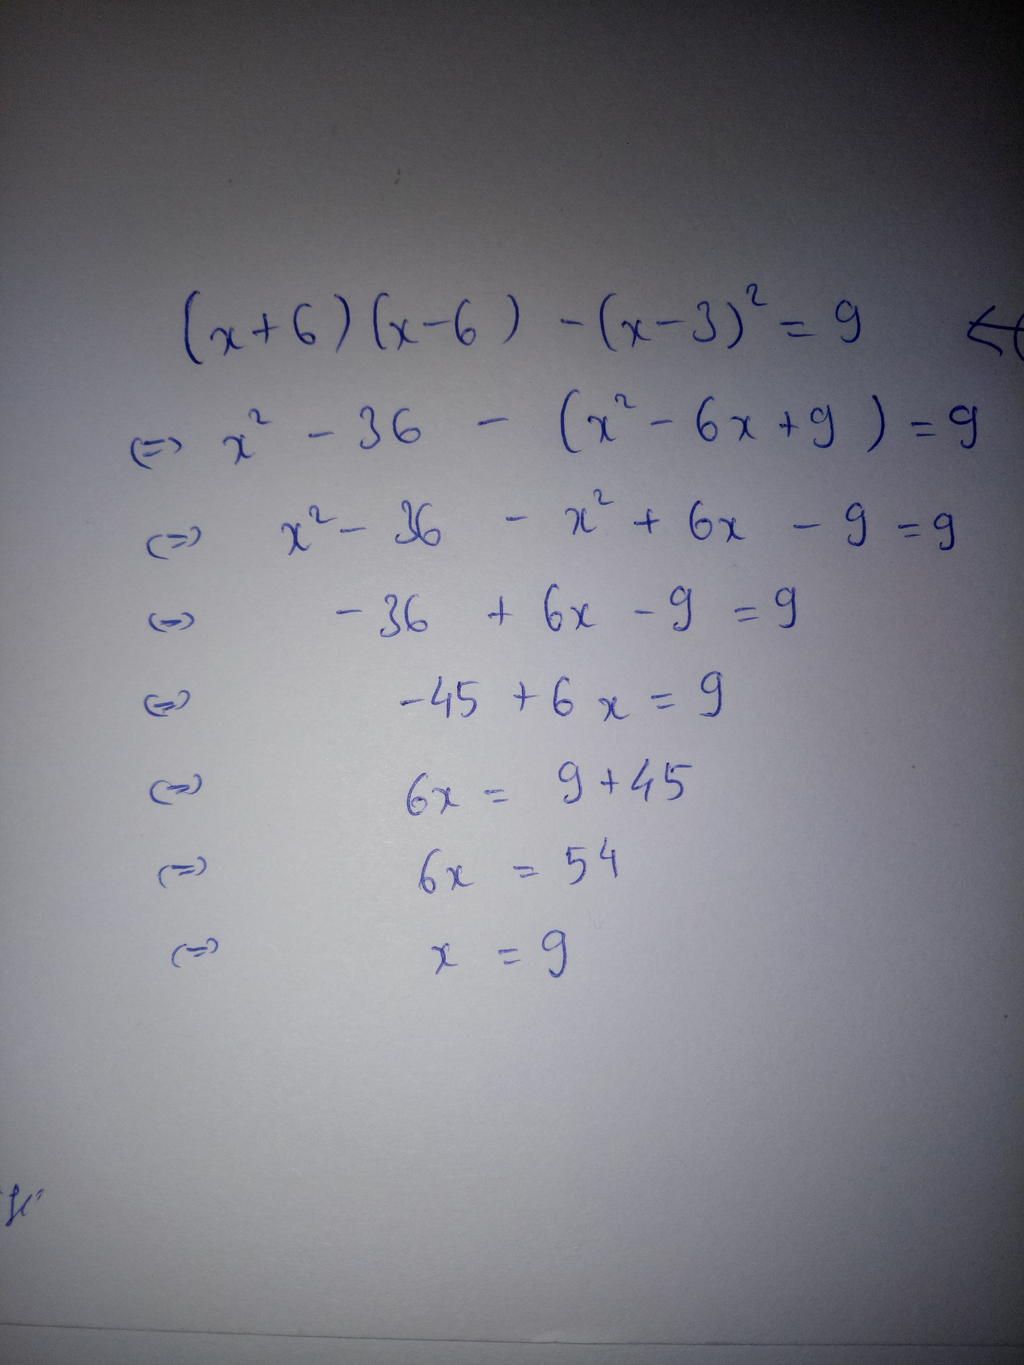 (x+6)(x-6) -(x-3)² = 9
⇔ x² - 36 - (x² - 6x + 9) = 9
⇔ x² - 36 - x² + 6x - 9 = 9
⇔ -36 + 6x - 9 = 9
⇔ -45 + 6x = 9
⇔ 6x = 9+45
⇔ 6x = 54
⇔ x = 9